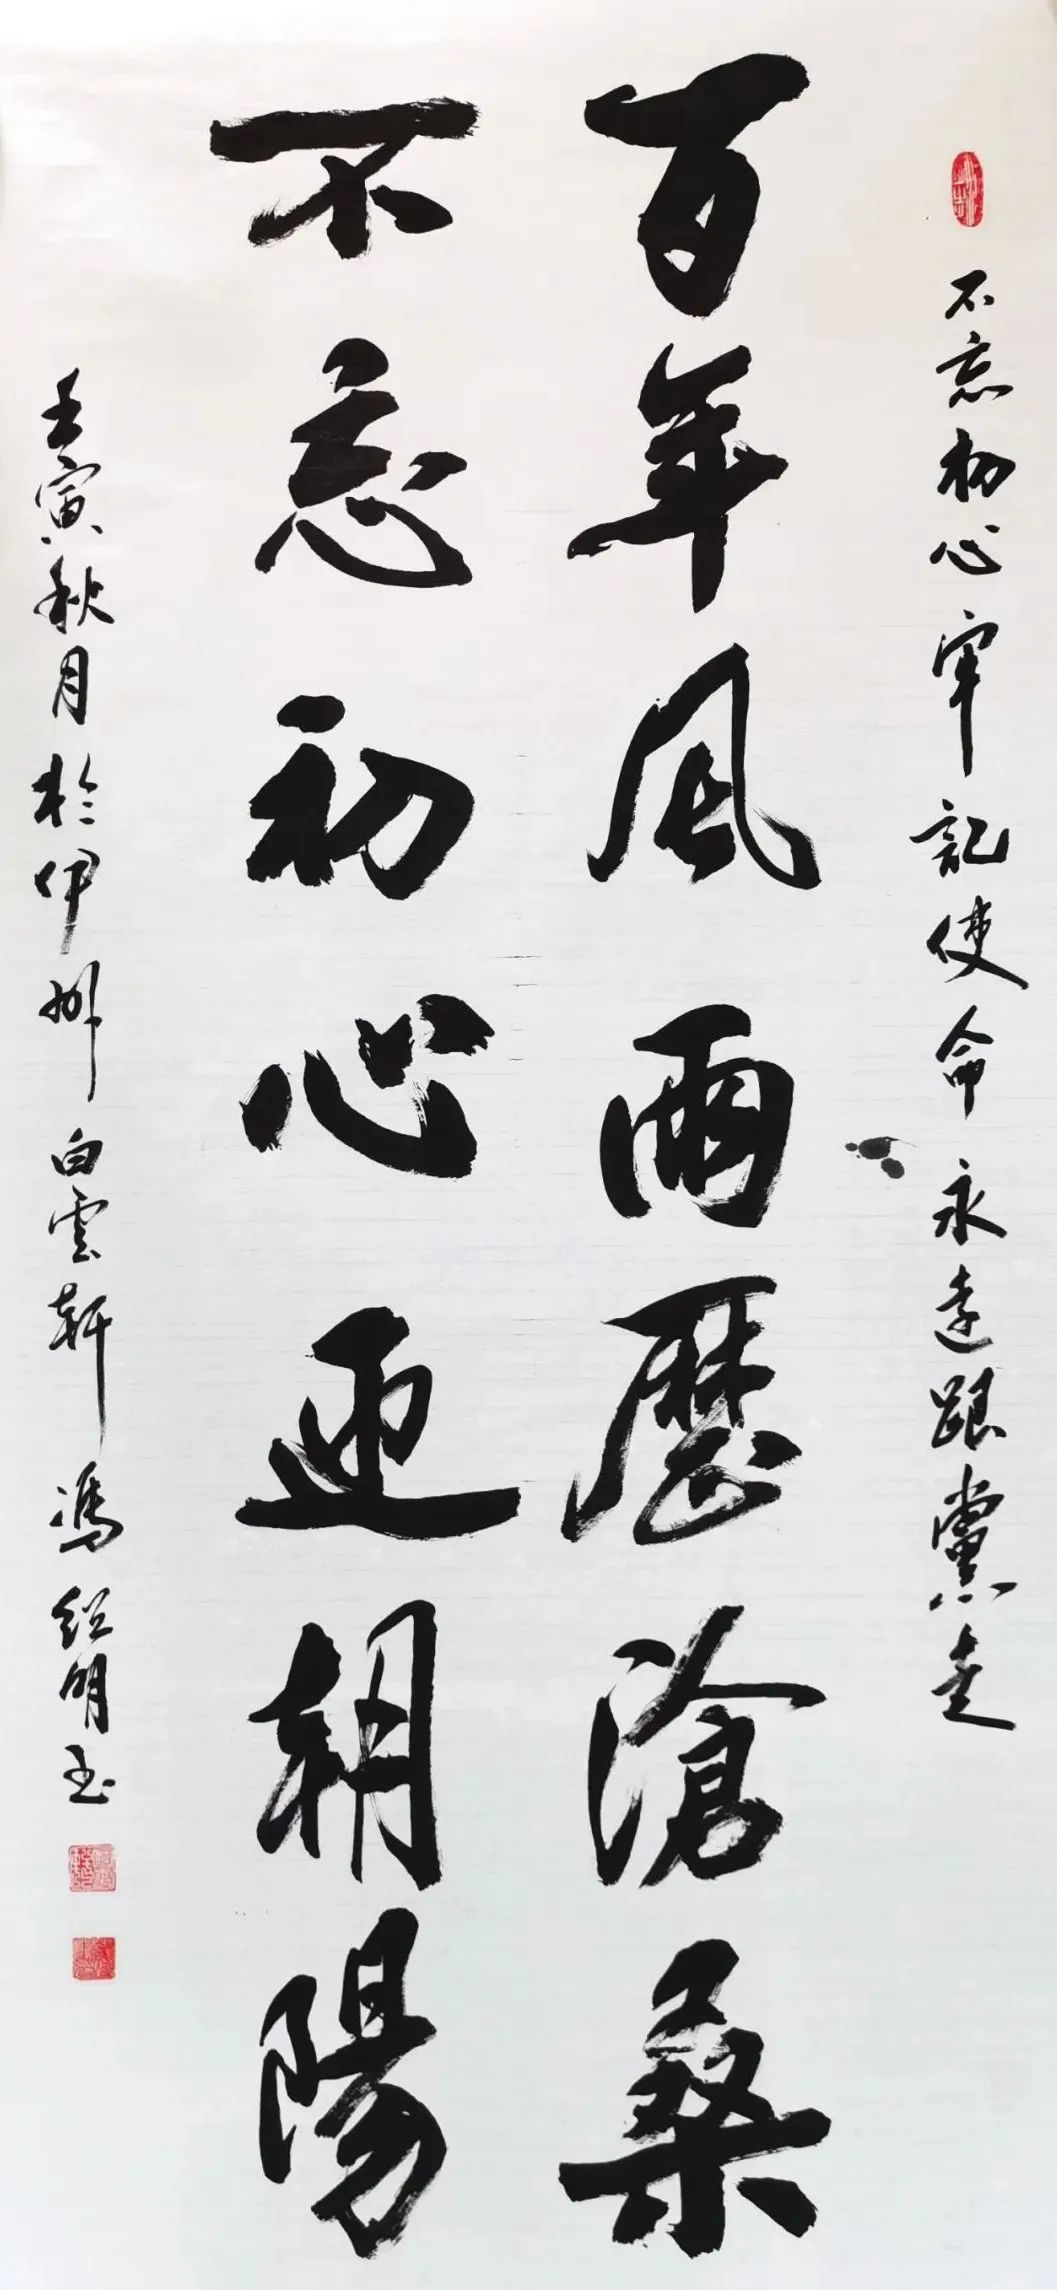 不忘初心牢記使命永遠跟黨走
百年風雨歷滄桑
不忘初心迎朝陽
壬寅秋月於伊州白雲軒馮紹明書